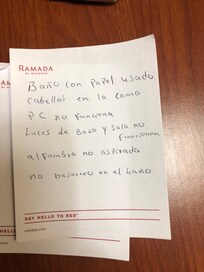 RAMADA
BY WYNDHAM
Baño con papel usado
cabellos en la cama
PC no funciona
Luces de baño y sala no
funcionan
alfombra no aspirada
no basurero en el baño
SAY HELLO TO RED
ramada.com